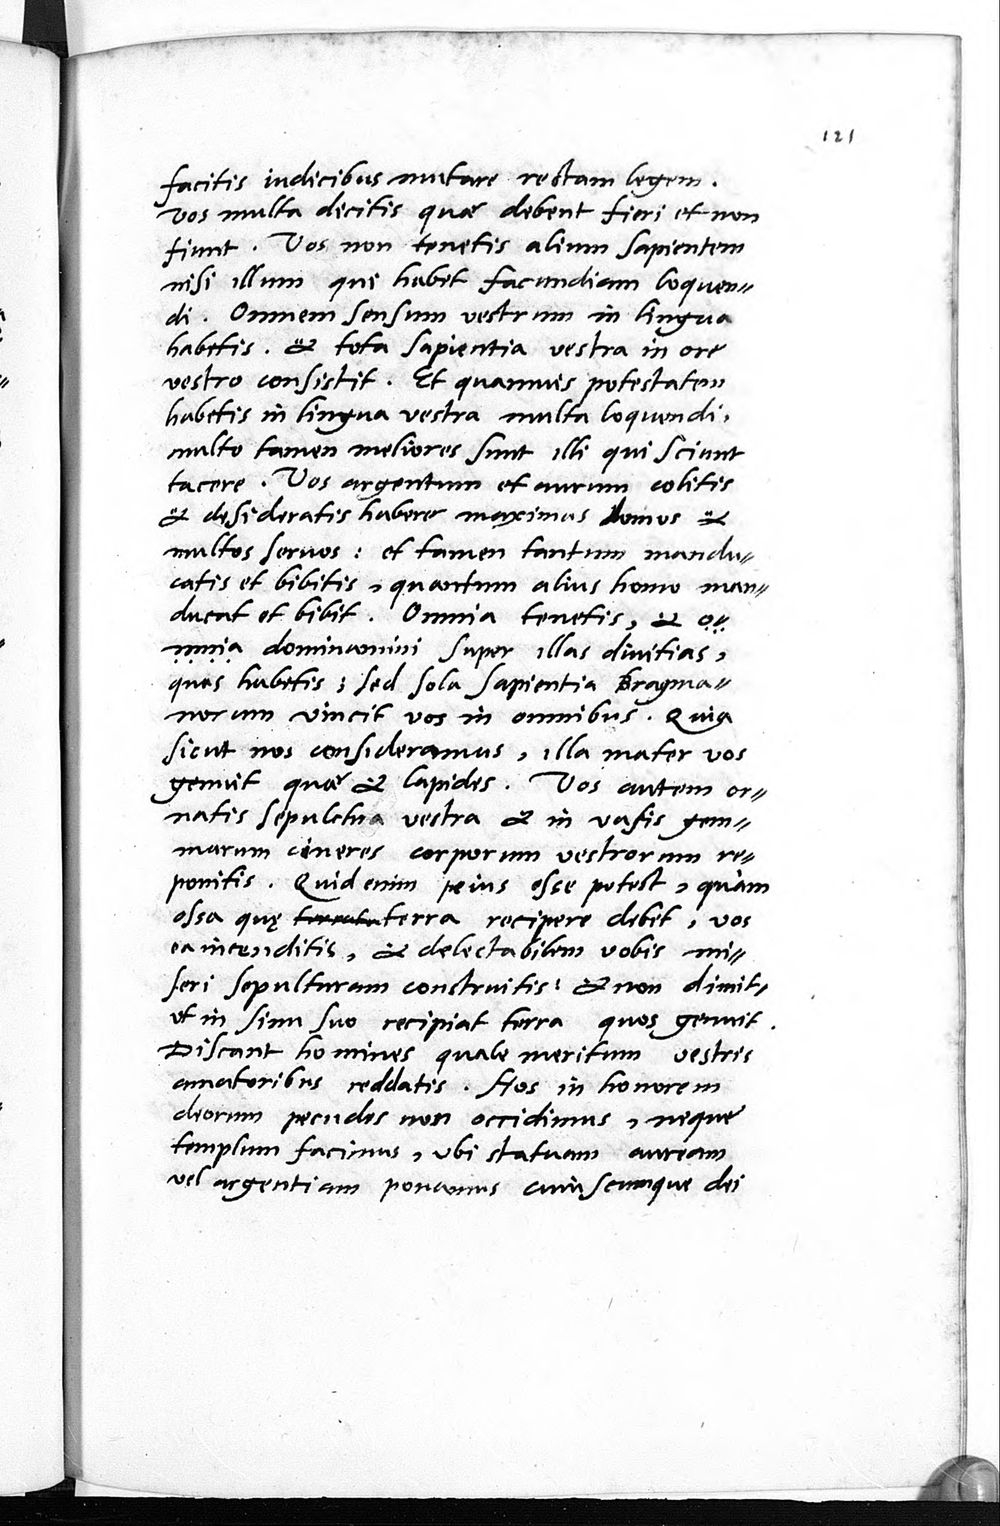 121
facitis iudicibus mutare rectam legem.
vos multa dicitis quae debent fieri et non
fiunt. Vos non tenetis alium sapientem
nisi illum qui habet facundiam loquen=
di. Omnem sensum vestrum in lingua
habetis. & tota sapientia vestra in ore
vestro consistit. Et quamuis potestatem
habetis in lingua vestra multa loquendi,
multo tamen meliores sunt illi qui sciunt
tacere. Vos argentum et aurum colitis
& desideratis habere maximas domos &
multos servos: et tamen tantum mandu=
catis et bibitis, quantum alius homo man=
ducat et bibit. Omnia tenetis, & o=
mnia dominamini super illas divitias,
quas habetis; sed sola sapientia Bragma=
norum vincit vos in omnibus. Quia
sicut nos consideramus, illa mater vos
genuit quae & lapides. Vos autem or=
natis sepulchra vestra & in vasis gem=
marum cineres corporum vestrorum re=
ponitis. Quid enim peius esse potest, quàm
ossa quę terra recipere debet, vos
ea incenditis, & delectabilem vobis mi=
seri sepulturam construitis: & non dimit=
ut in sinu suo recipiat terra quos genuit.
Discant homines quale meritum vestris
amatoribus reddatis. Nos in honorem
deorum pecudes non occidimus, neque
templum facimus, ubi statuam auream
vel argentiam ponamus cuiuscumque dei